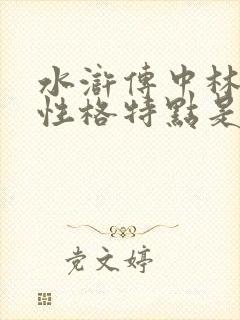 水滸傳中林
性格特點是
党文婷